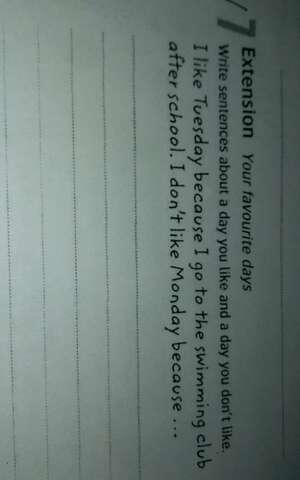 7 Extension Your favourite days
Write sentences about a day you like and a day you don't like.
I like Tuesday because I go to the swimming club
after school. I don't like Monday because ...